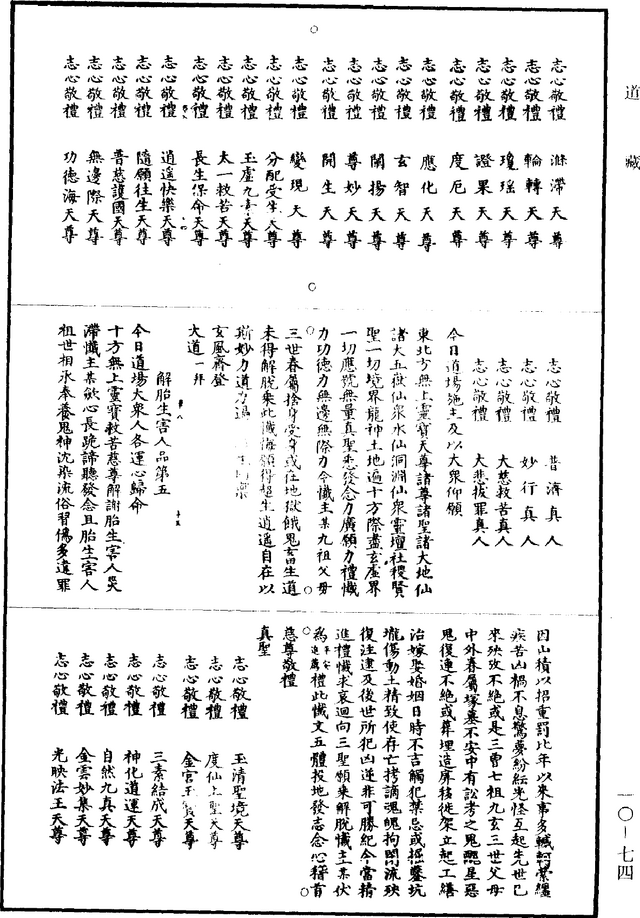 道藏
志心敬禮 滌滯天尊
志心敬禮 輪轉天尊
志心敬禮 瓊瑤天尊
志心敬禮 證果天尊
志心敬禮 度厄天尊
志心敬禮 應化天尊
志心敬禮 玄智天尊
志心敬禮 開揚天尊
志心敬禮 尊妙天尊
志心敬禮 開生天尊
志心敬禮 變現天尊
志心敬禮 分配受生天尊
志心敬禮 玉虛九 天尊
志心敬禮 太一救苦天尊
志心敬禮 長生保命天尊
志心敬禮 逍遙快樂天尊
志心敬禮 隨願往生天尊
志心敬禮 普慈護國天尊
志心敬禮 無邊際天尊
志心敬禮 功德海天尊
志心敬禮 普濟真人
志心敬禮 妙行真人
志心敬禮 大慈救苦真人
志心敬禮 大悲拔罪真人
今日道場施主及以大衆仰願
東北方無上靈寶天尊諸尊諸聖諸大地仙
諸大五嶽仙衆水仙洞淵仙衆靈壇社稷賢
聖一切境界龍神土地過十方際盡玄虛界
一切應號無量真聖悲發念力廣願力禮懺
力功德力無邊無際力令懺主某九祖父母
三世眷屬捨身受身或在地獄餓鬼畜生道
未得解脫乘此懺悔願得超生逍遙自在以
斯妙力道力 衆
玄風齊登
大道一拜
解胎生害人品第五
今日道場大衆人各運心歸命
十方無上靈寶救苦慈尊解謝胎生害人災
滯懺主某歛心長跪諦聽發念且胎生害人
祖世相承奉養鬼神沈染流俗習僞多違罪
因山積以招重罰比年以來事多轗軻縈纏
疾苦凶禍不息驚夢紛紜光怪互起先世已
來殃攻不絕或是三曾七祖九玄三世父母
中外眷屬塚墓不安中有訟考之鬼醜星惡
鬼復連不絕或葬埋造屏移徙架立起工繕
治嫁娶婚姻日時不吉觸犯禁忌或掘鑿坑
壠傷動土精致使存亡拷謫魂魄拘閉流殃
復注逮及後世所犯凶逆非可勝紀今當精
進禮懺求哀迴向三聖願乘解脫懺主某伏
爲平安進薦禮此懺文五體投地發志念心稽首
慈尊敬禮
真聖
志心敬禮 玉清聖境天尊
志心敬禮 度仙上聖天尊
志心敬禮 金宮玉 天尊
志心敬禮 三素結成天尊
志心敬禮 神化道運天尊
志心敬禮 自然九真天尊
志心敬禮 金雲妙集天尊
志心敬禮 光映法王天尊
一〇—七四